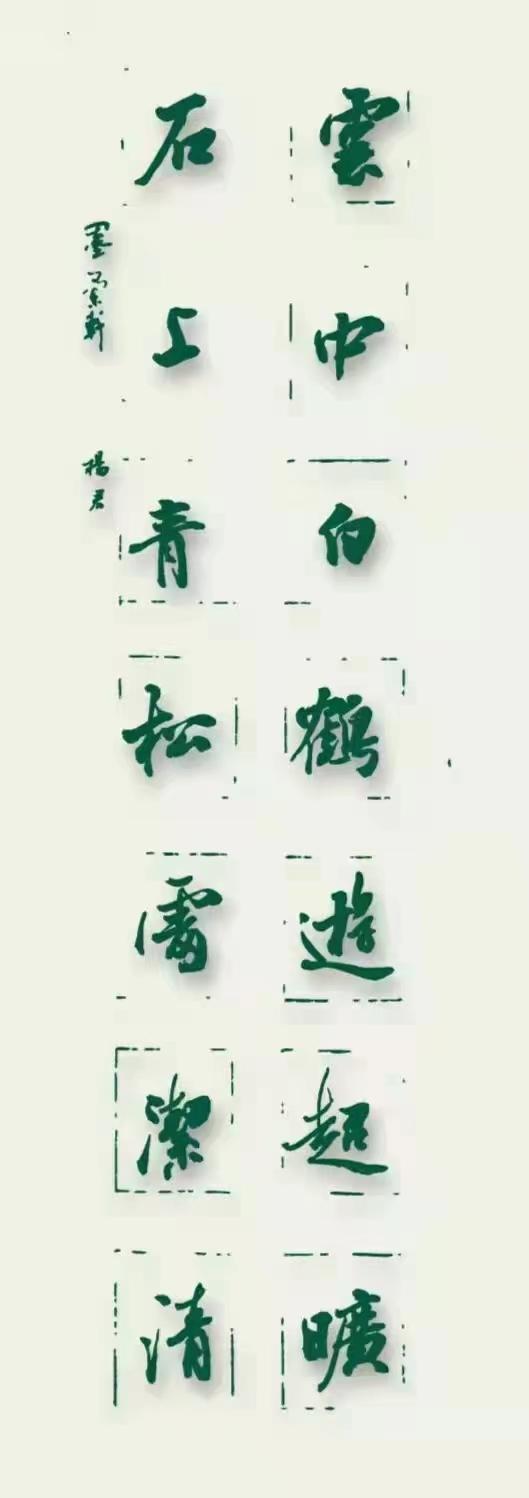 雲中白鶴遊超曠
石上青松露潔清
墨 軒
楊君